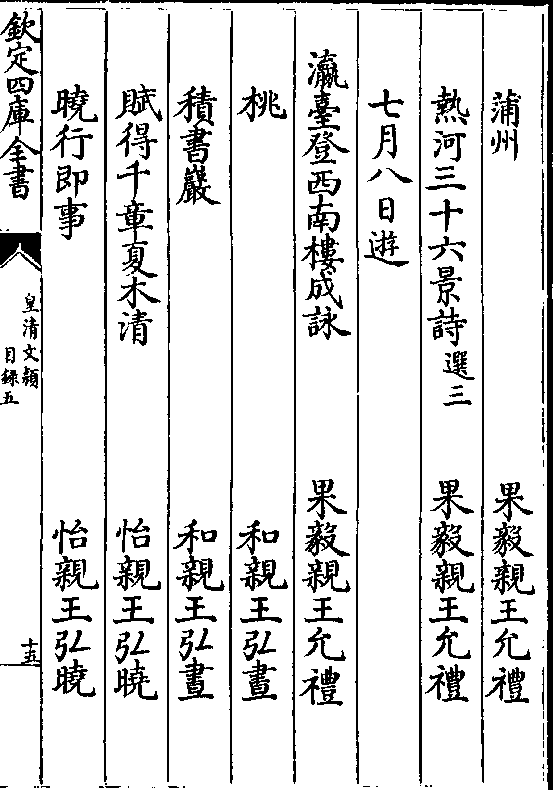 蒲州 果毅親王允禮
熱河三十六景詩選三 果毅親王允禮
七月八日遊
瀛臺登西南樓成詠 果毅親王允禮
桃 和親王弘晝
積書巖 和親王弘晝
賦得千章夏木清 怡親王弘曉
曉行即事 怡親王弘曉
欽定四庫全書
皇清文穎
目録五
十五